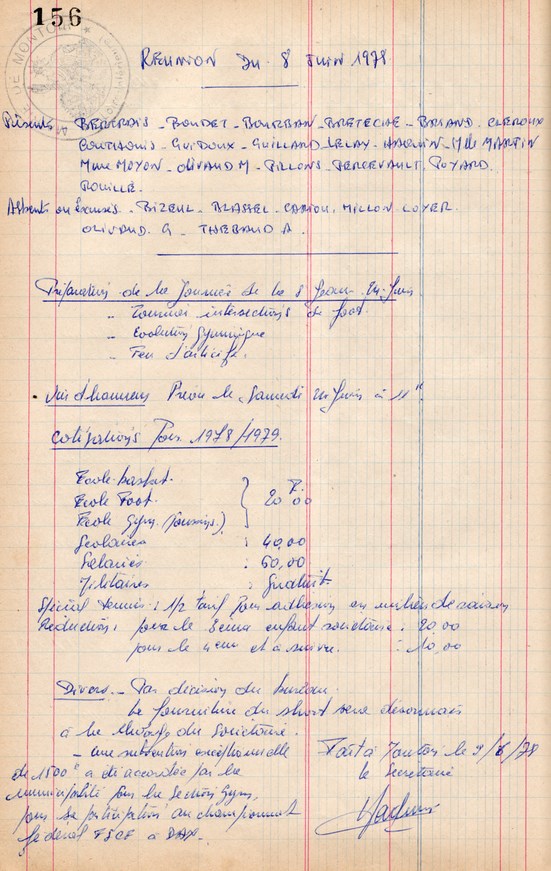 156
REUNION DU 8 JUIN 1978
Présents BOUDET - BOURBAN - BRETECHE - BRIAND - CLEROUX
GUIDOUX - GUILLARD - LELAY - HAQUIN - Mlle MARTIN
Mme MOYON - OLIVAUD M - PILLONS - PERCEVAULT. POYARD.
ROUILLÉ.
Absents ou Excusés - BIZEUL - BLASSEL - CARIOU, MILLON LOYER.
OLIVAUD. G - THEBAUD A.
Préparation de la Journée de la
- Tournoi intersections de foot.
- Evolution Gymnique
- Feu d'artifice.
. Vin d'honneur Prévu le Samedi 24 Juin à 11h.
Cotisations Pour 1978/1979.
Ecole basket.
Ecole Foot. } 20F00
Ecole Gym. (poussins)
Scolaires : 40,00
Salariés : 60,00
Militaires : Gratuit
Spécial tennis : 1/2 tarif pour adhésion en milieu de saison
Réduction : pour le 3ème enfant sociétaire : 20,00
pour le 4eme et à suivre. : 10,00
Divers - Par décision du bureau.
La fourniture du short sera désormais
à la charge du Sociétaire.
- une subvention exceptionnelle
de 1500F a été accordée par la
municipalité pour la section Gym,
pour sa participation au championnat
fédéral FSCF à DAX.
Fait à le 9/6/78
le Secrétaire